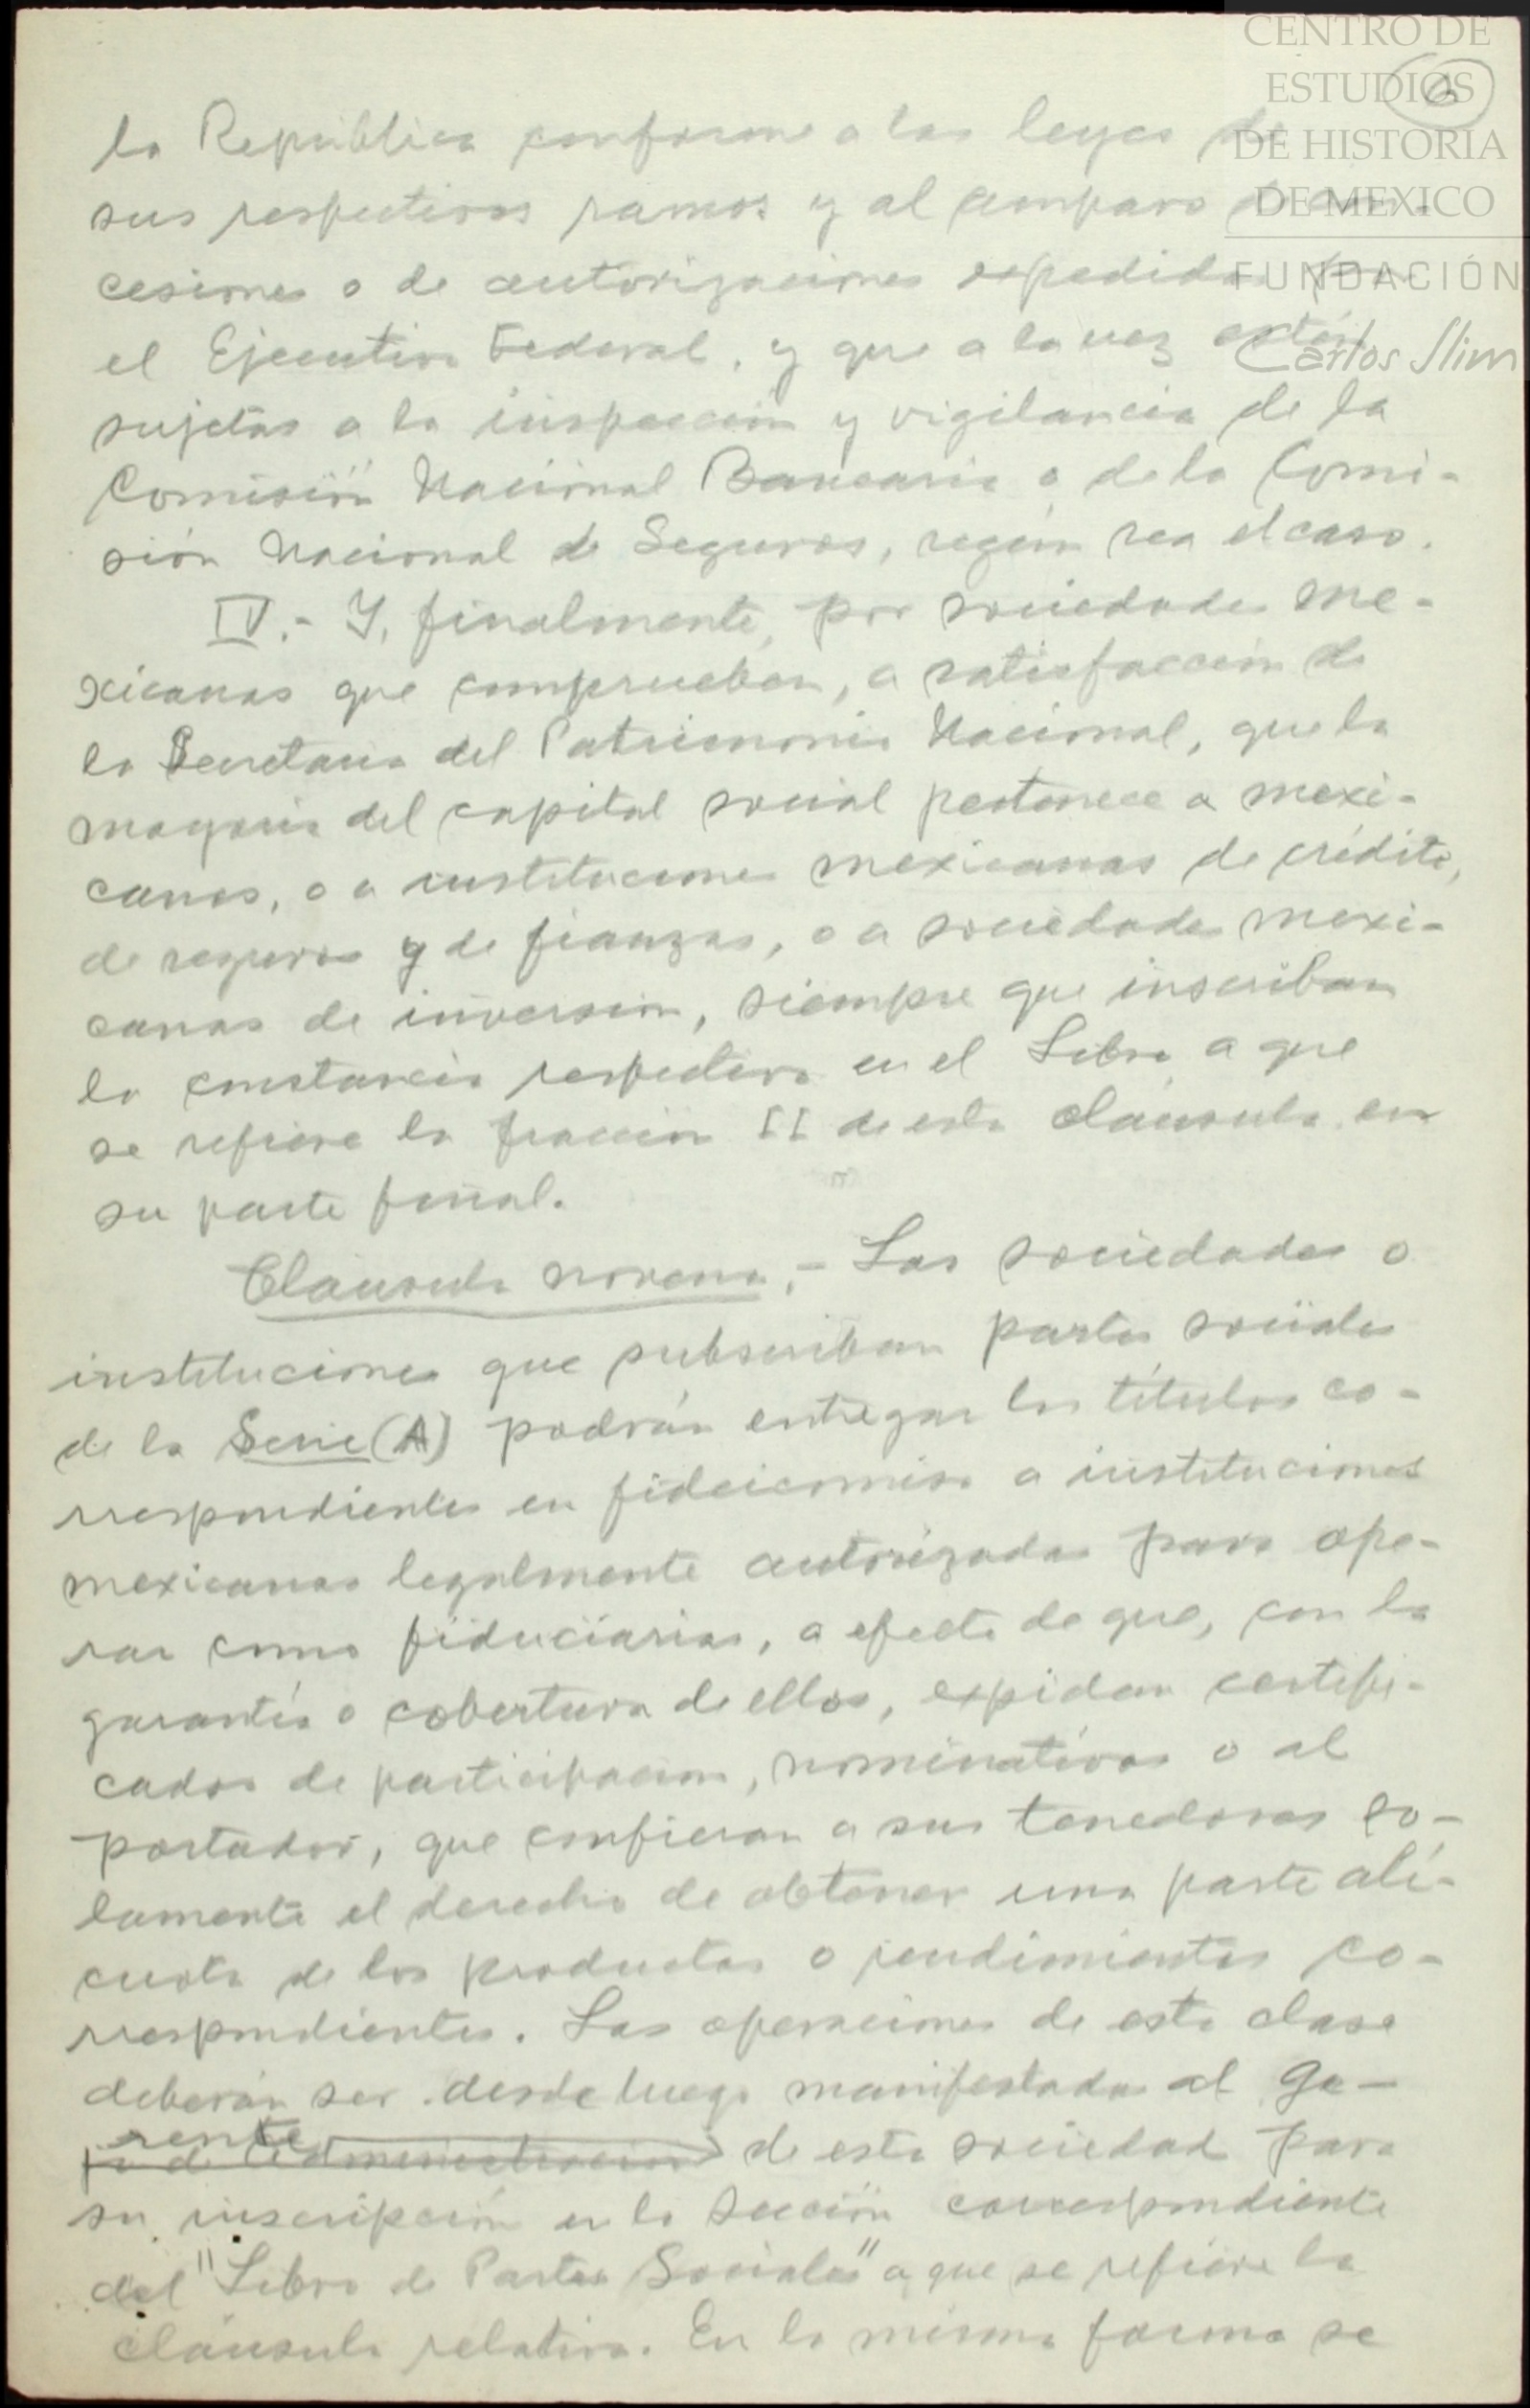 CENTRO DE
ESTUDIOS
DE HISTORIA
DE MEXICO
FUNDACIÓN
Carlos Slim
6
la República conforme a las leyes de
sus respectivos ramos y al amparo de con-
cesiones o de autorizaciones expedidas por
el Ejecutivo Federal, y que a la vez estén
sujetas a la inspección y vigilancia de la
Comisión Nacional Bancaria o de la Comi-
sión Nacional de Seguros, según sea el caso.
IV.- Y, finalmente, por sociedades me-
xicanas que comprueben, a satisfacción de
la Secretaria del Patrimonio Nacional, que la
mayoria del capital social pertenece a mexi-
canos, o a instituciones mexicanas de crédito,
de seguros y de fianzas, o a sociedades mexi-
canas de inversion, siempre que inscriban
la constancia respectiva en el Libro a que
se refiere la fracción II de esta cláusula en
su parte final.
Cláusula novena.- Las sociedades o
instituciones que subscriban partes sociales
de la Serie (A) podrán entregar los títulos co-
rrespondientes en fideicomiso a instituciones
mexicanas legalmente autorizadas para ope-
rar como fiduciarias, a efecto de que, con la
garantía o cobertura de ellos, expidan certifi-
cados de participacion, nominativos o al
portador, que confieran a sus tenedores so-
lamente el derecho de obtener una parte alí-
cuota de los productos o rendimientos co-
rrespondientes. Las operaciones de esta clase
deberán ser desde luego manifestadas al Ge-
rente
jo de Administración de esta sociedad para
su inscripción en la Sección correspondiente
del "Libro de Partes Sociales" a que se refiere la
cláusula relativa. En la misma forma se